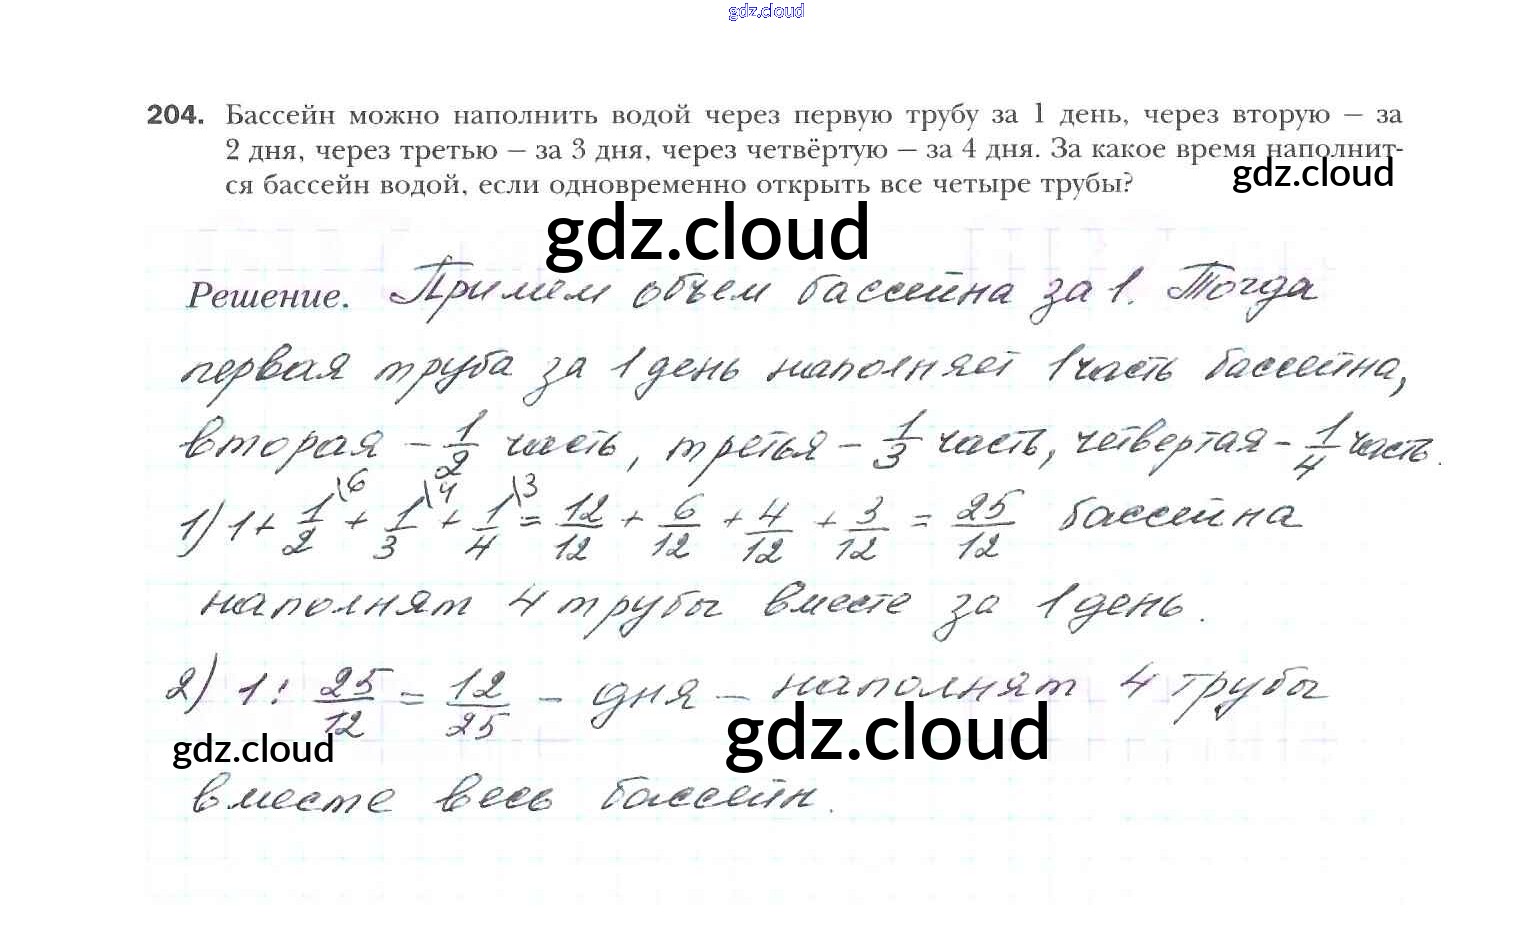 gdz.cloud
204. Бассейн можно наполнить водой через первую трубу за 1 день, через вторую – за
2 дня, через третью – за 3 дня, через четвёртую – за 4 дня. За какое время наполнит-
ся бассейн водой, если одновременно открыть все четыре трубы?
gdz.cloud
gdz.cloud
Решение. Примем объем бассейна за 1. Тогда
первая труба за 1 день наполняет 1 часть бассейна,
вторая – 1/2 часть, третья – 1/3 часть, четвертая – 1/4 часть.
1) 1 + 1/2 \6 + 1/3 \4 + 1/4 \3 = 12/12 + 6/12 + 4/12 + 3/12 = 25/12 бассейна
наполнят 4 трубы вместе за 1 день.
2) 1 : 25/12 = 12/25 – дня – наполнят 4 трубы
gdz.cloud
gdz.cloud
вместе весь бассейн.